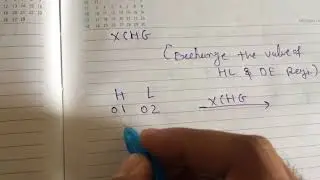 XCHG
(Exchange the value of
HL & DE Regs.)
H L
01 02 XCHG